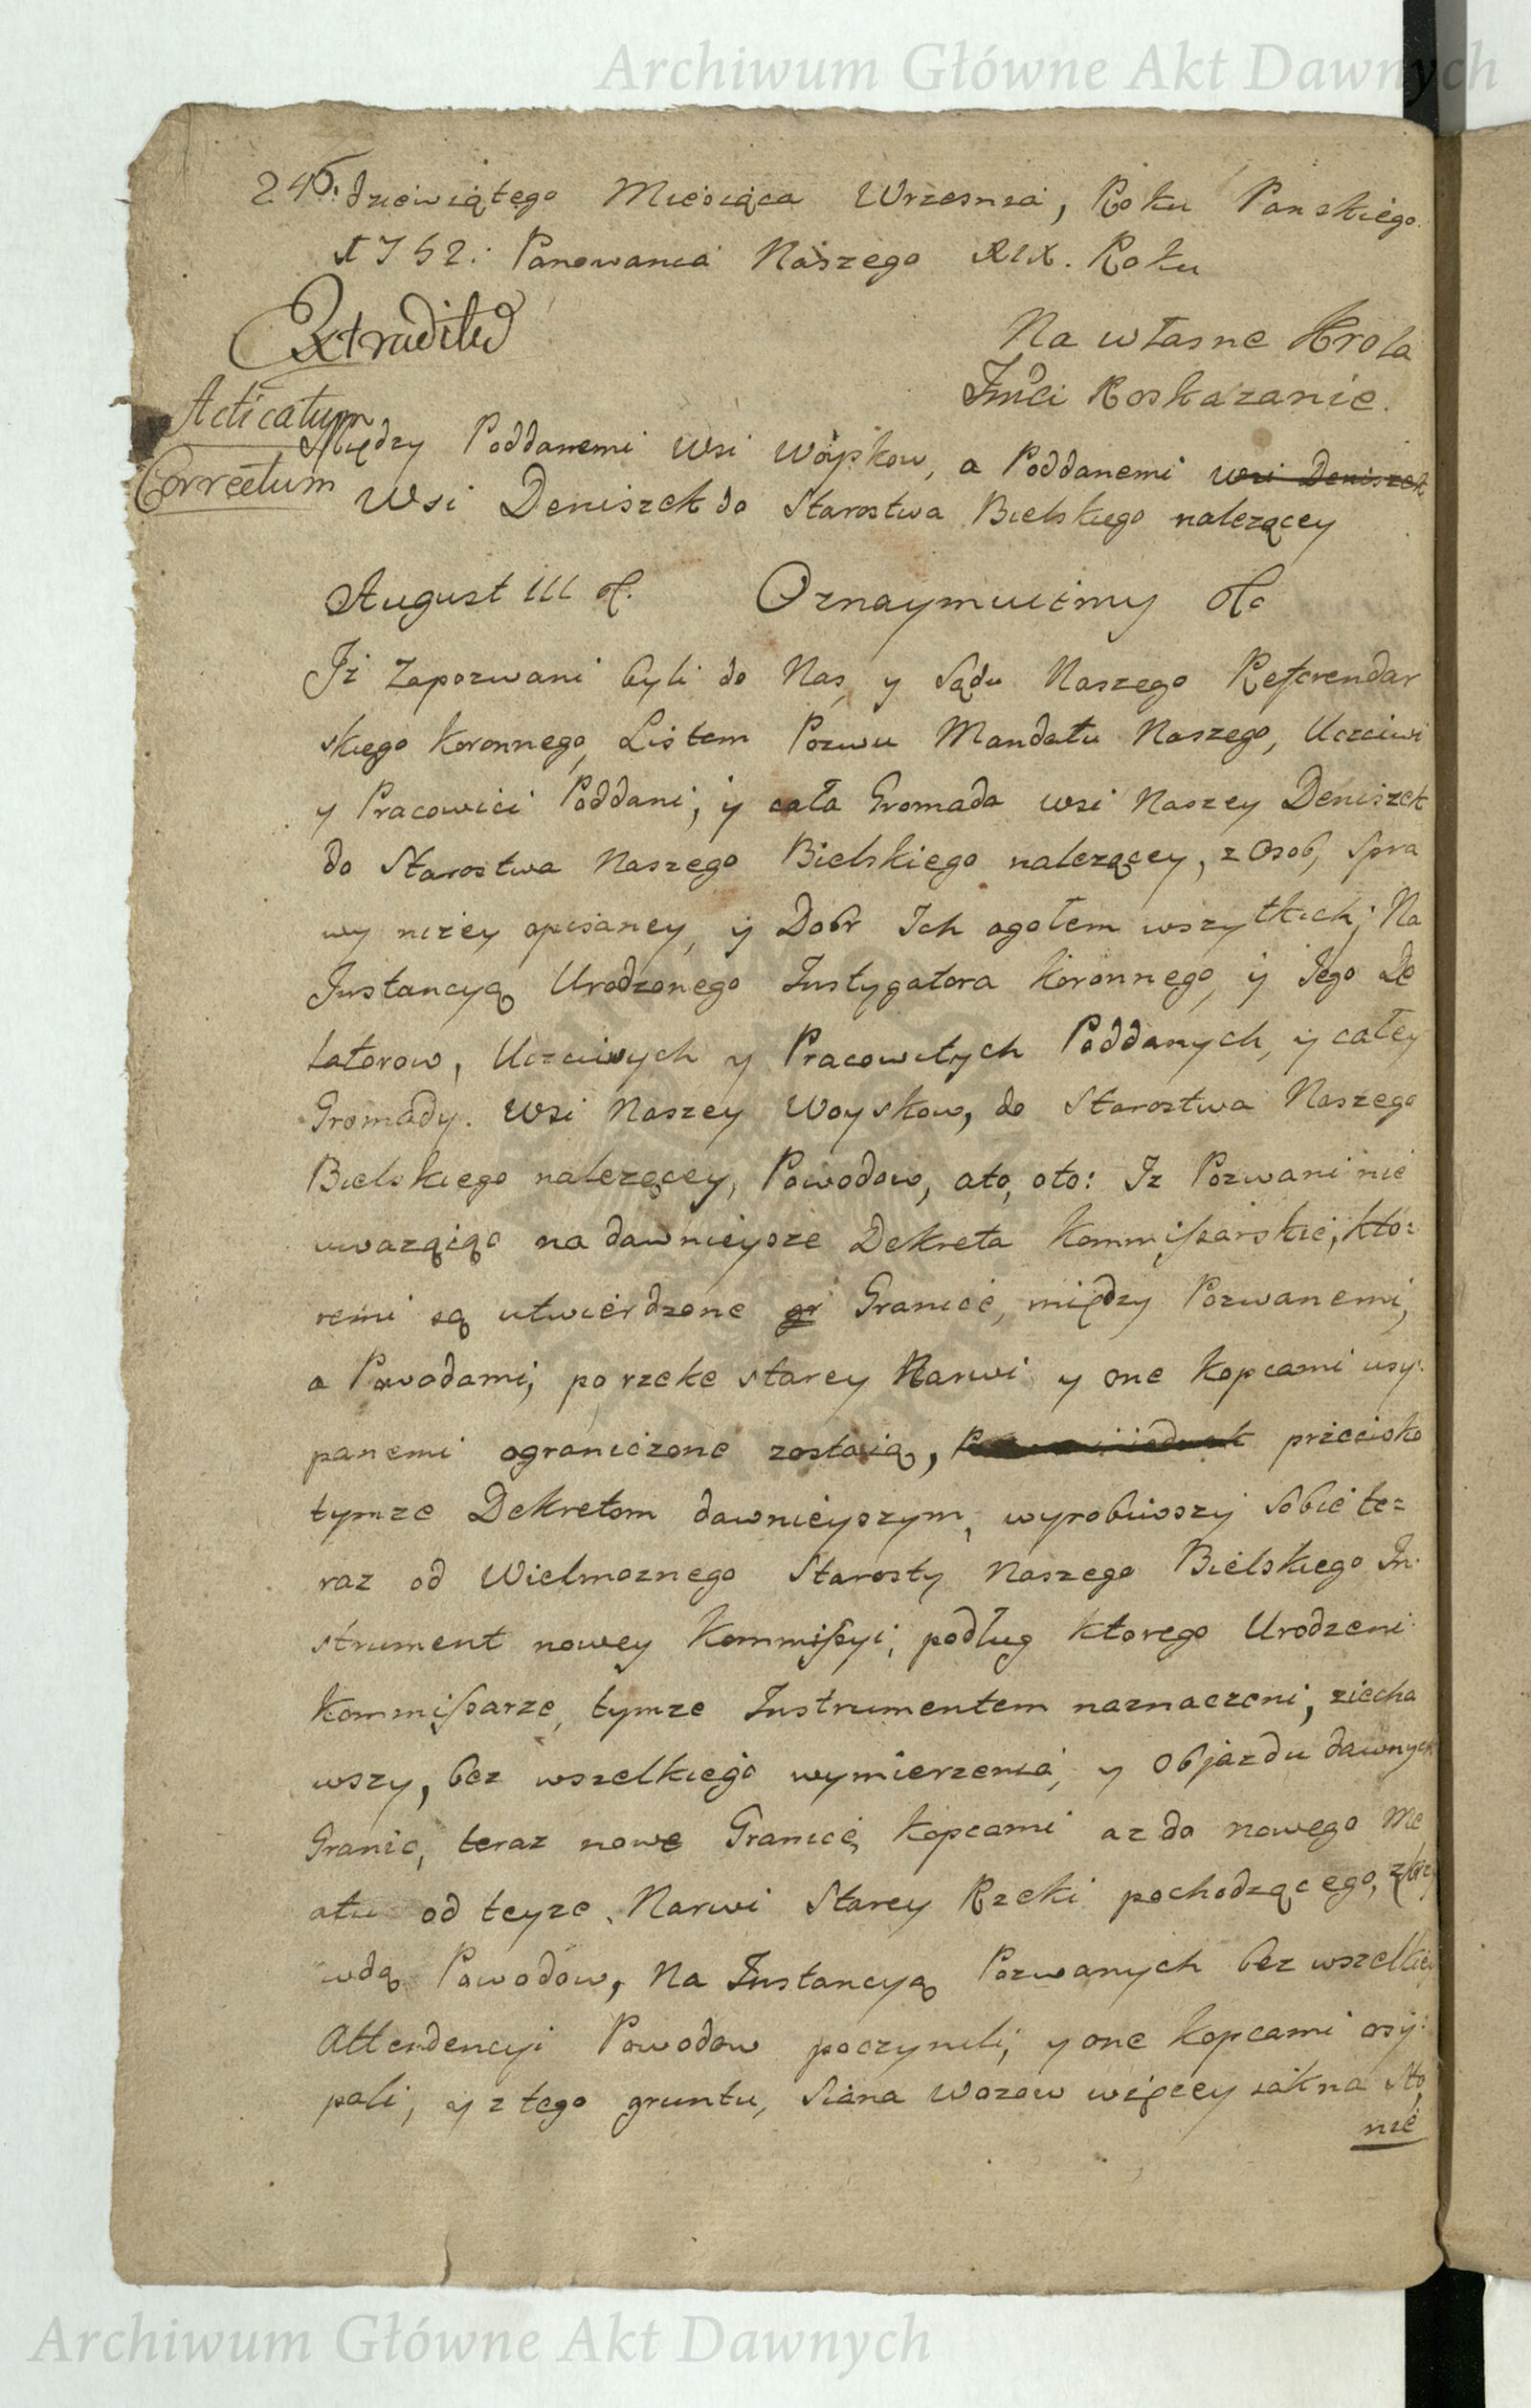 Archiwum Główne Akt Dawnych
246. dziewiątego Miesiąca Wrzesnia, Roku Panskiego
1752. Panowania Naszego XIX. Roku
Extraditū
Na własne Krola
Jmci Roskazanie.
Acticatum
Correctum
Między Poddanemi Wsi Woyskow, a Poddanemi wsi Deniszek
Wsi Deniszek do Starostwa Bielskiego nalezący
August III &. Oznaymuiemy &c
Iż Zapozwani byli do Nas y Sądu Naszego Referendar
skiego Koronnego, Listem Pozwu Mandatu Naszego, Uczciwi
y Pracowici Poddani, y cała Gromada wsi Naszey Deniszek
do Starostwa Naszego Bielskiego nalezącey, z Osob, Spra
wy niżey opisaney, y Dobr Ich ogołem wszytkich; Na
Instancyą Urodzonego Instygatora Koronnego, y Iego De
latorow, Uczciwych y Pracowitych Poddanych, y całey
Gromady. Wsi Naszey Woyskow, do Starostwa Naszego
Bielskiego nalezącey, Powodow, ato, oto: Iz Pozwani nie
uwaząiąc na dawnieysze Dekreta Kommissarskie, kto=
remi są utwierdzone gr Granice, między Pozwanemi,
a Powodami, po rzeke starey Narwi y one Kopcami usy=
panemi ograniczone zostaią, przeciwko
tymze Dekretom dawnieyszym, wyrobiwszy Sobie te=
raz od Wielmoznego Starosty Naszego Bielskiego In=
strument nowey Kommissyi, podług ktorego Urodzeni
Kommissarze, tymze Instrumentem naznaczeni, ziecha
wszy, bez wszelkiego wymierzenia, y Objazdu dawnych
Granic, teraz nowe Granice, Kopcami az do nowego Me
atu od teyze Narwi Starey Rzeki pochodzącego, z krzy
wdą Powodow, Na Instancyą Pozwanych bez wszelkiey
Attendencyi Powodow poczynili, y one kopcami osy=
pali, y z tego gruntu, Siana Wozow więcey iak na sto,
nie
Archiwum Główne Akt Dawnych